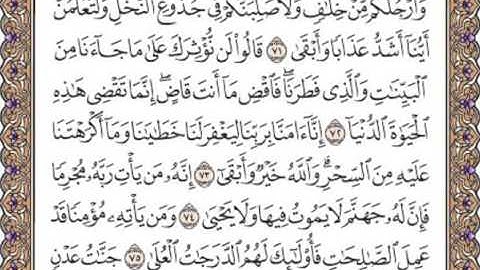 وَأَرْجُلَكُم مِّنْ خِلَٰفٍ وَلَأُصَلِّبَنَّكُمْ فِي جُذُوعِ ٱلنَّخْلِ وَلَتَعْلَمُنَّ
أَيُّنَآ أَشَدُّ عَذَابًا وَأَبْقَىٰ ٧١ قَالُوا۟ لَن نُّؤْثِرَكَ عَلَىٰ مَا جَآءَنَا مِنَ
ٱلْبَيِّنَٰتِ وَٱلَّذِي فَطَرَنَا ۖ فَٱقْضِ مَآ أَنتَ قَاضٍ ۖ إِنَّمَا تَقْضِي هَٰذِهِ
ٱلْحَيَوٰةَ ٱلدُّنْيَآ ٧٢ إِنَّآ ءَامَنَّا بِرَبِّنَا لِيَغْفِرَ لَنَا خَطَٰيَٰنَا وَمَآ أَكْرَهْتَنَا
عَلَيْهِ مِنَ ٱلسِّحْرِ ۗ وَٱللَّهُ خَيْرٌ وَأَبْقَىٰٓ ٧٣ إِنَّهُۥ مَن يَأْتِ رَبَّهُۥ مُجْرِمًا
فَإِنَّ لَهُۥ جَهَنَّمَ لَا يَمُوتُ فِيهَا وَلَا يَحْيَىٰ ٧٤ وَمَن يَأْتِهِۦ مُؤْمِنًا قَدْ
عَمِلَ ٱلصَّٰلِحَٰتِ فَأُو۟لَٰٓئِكَ لَهُمُ ٱلدَّرَجَٰتُ ٱلْعُلَىٰ ٧٥ جَنَّٰتُ عَدْنٍ